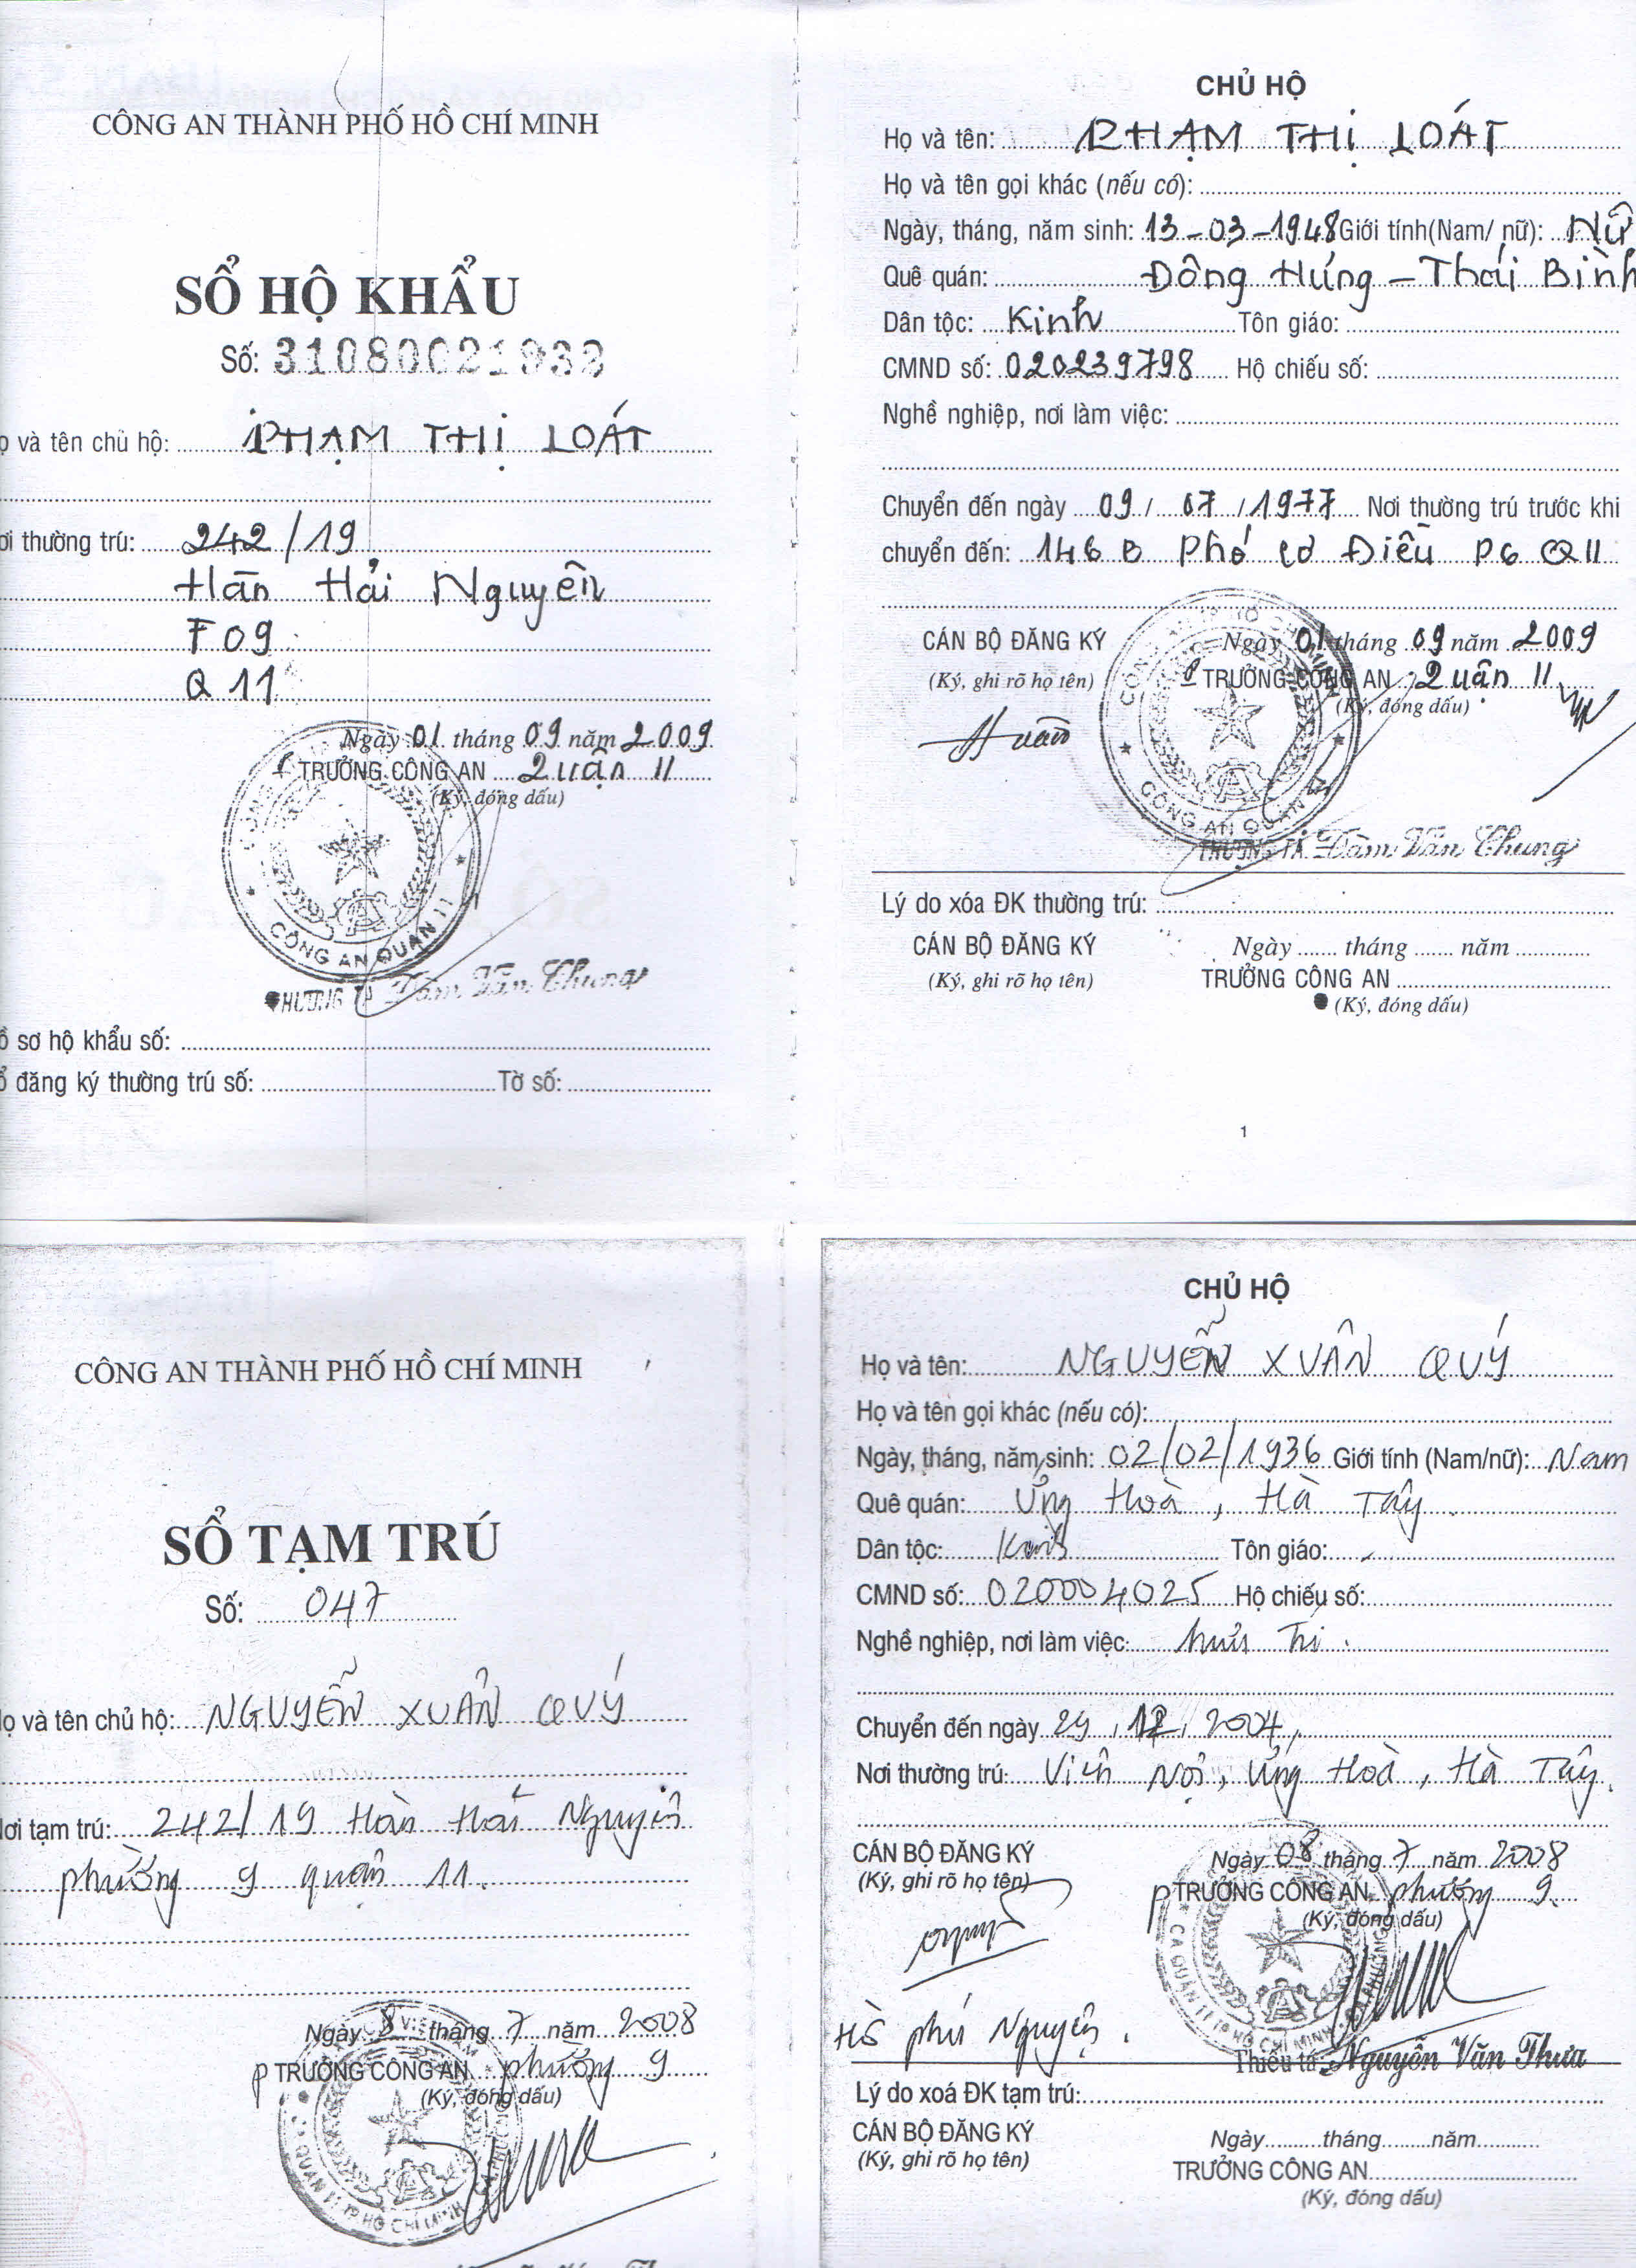 CÔNG AN THÀNH PHỐ HỒ CHÍ MINH
SỔ HỘ KHẨU
Số: 31080021932
và tên chủ hộ: PHẠM THỊ LOÁT
i thường trú: 242/19
Hàn Hải Nguyên
F 09
Q 11
Ngày 01 tháng 09 năm 2009
TRƯỞNG CÔNG AN Quận 11
(Ký, đóng dấu)
CÔNG AN QUẬN 11
Đàm Văn Chung
sơ hộ khẩu số:
đăng ký thường trú số: Tờ số:
CHỦ HỘ
Họ và tên: PHẠM THỊ LOÁT
Họ và tên gọi khác (nếu có):
Ngày, tháng, năm sinh: 13-03-1948 Giới tính(Nam/ nữ): Nữ
Quê quán: Đông Hưng - Thái Bình
Dân tộc: Kinh Tôn giáo:
CMND số: 020239798 Hộ chiếu số:
Nghề nghiệp, nơi làm việc:
Chuyển đến ngày 09 / 07 / 1977 Nơi thường trú trước khi
chuyển đến: 146 B Phó Cơ Điều P6 Q11
CÁN BỘ ĐĂNG KÝ
(Ký, ghi rõ họ tên)
Ngày 01 tháng 09 năm 2009
TRƯỞNG CÔNG AN Quận 11
(Ký, đóng dấu)
CÔNG AN QUẬN 11
THƯỢNG TÁ Đàm Văn Chung
Lý do xóa ĐK thường trú:
CÁN BỘ ĐĂNG KÝ
(Ký, ghi rõ họ tên)
Ngày ....... tháng ....... năm
TRƯỞNG CÔNG AN
(Ký, đóng dấu)
1
CÔNG AN THÀNH PHỐ HỒ CHÍ MINH
SỔ TẠM TRÚ
Số: 047
ọ và tên chủ hộ: NGUYỄN XUÂN QUÝ
ơi tạm trú: 242/19 Hàn Hải Nguyên
phường 9 quận 11.
Ngày 8 tháng 7 năm 2008
TRƯỞNG CÔNG AN phường 9
(Ký, đóng dấu)
QUẬN 11 TP HỒ CHÍ MINH
CHỦ HỘ
Họ và tên: NGUYỄN XUÂN QUÝ
Họ và tên gọi khác (nếu có):
Ngày, tháng, năm sinh: 02/02/1936 Giới tính (Nam/nữ): Nam
Quê quán: Ứng Hoà, Hà Tây
Dân tộc: Kinh Tôn giáo:
CMND số: 020004025 Hộ chiếu số:
Nghề nghiệp, nơi làm việc: hưu trí.
Chuyển đến ngày 29, 12, 2004,
Nơi thường trú: Viên Nội, Ứng Hoà, Hà Tây.
CÁN BỘ ĐĂNG KÝ
(Ký, ghi rõ họ tên)
Ngày 08 tháng 7 năm 2008
TRƯỞNG CÔNG AN phường 9.
(Ký, đóng dấu)
CA QUẬN 11 TP HỒ CHÍ MINH
Hồ phú Nguyên.
Thiếu tá: Nguyễn Văn Thưa
Lý do xoá ĐK tạm trú:
CÁN BỘ ĐĂNG KÝ
(Ký, ghi rõ họ tên)
Ngày..........tháng.........năm...........
TRƯỞNG CÔNG AN
(Ký, đóng dấu)